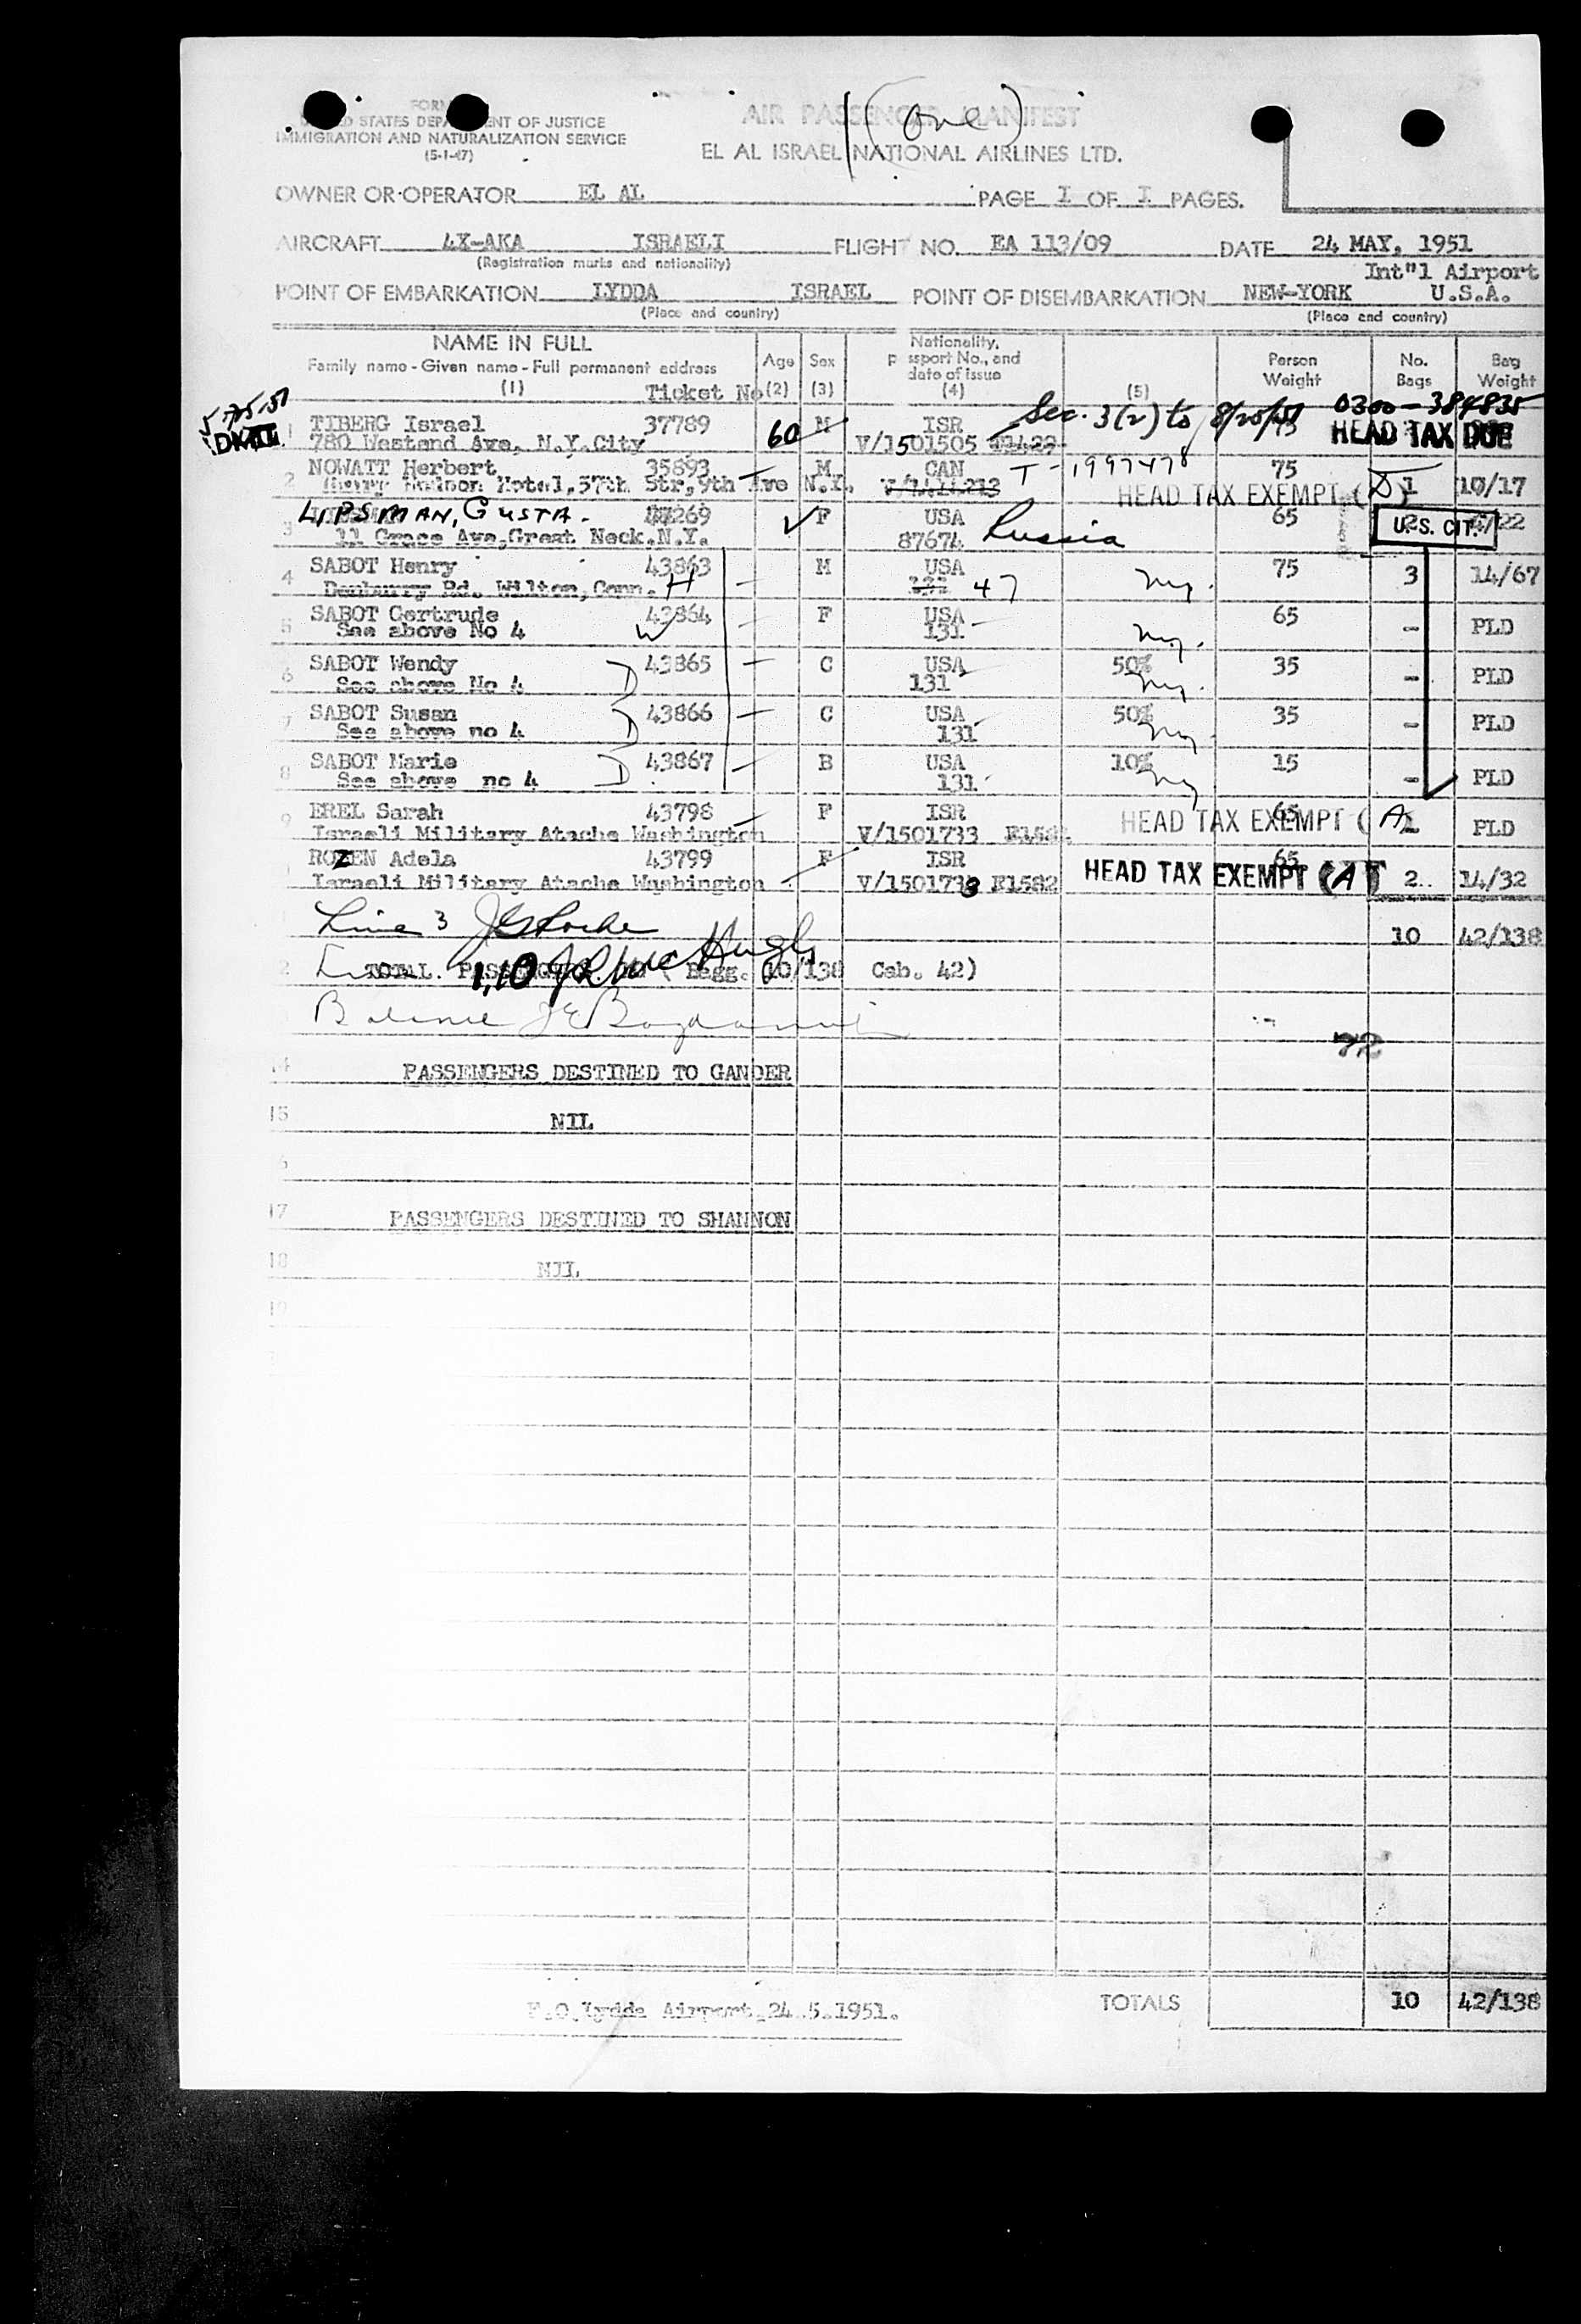 (One)
UNITED STATES DEPARTMENT OF JUSTICE
IMMIGRATION AND NATURALIZATION SERVICE
(5-1-47)
AIR PASSENGER MANIFEST
EL AL ISRAEL NATIONAL AIRLINES LTD.
OWNER OR OPERATOR EL AL PAGE I OF I PAGES.
AIRCRAFT 4X-AKA ISRAELI FLIGHT NO. EA 113/09 DATE 24 MAY, 1951
(Registration marks and nationality)
Int"l Airport
POINT OF EMBARKATION LYDDA ISRAEL POINT OF DISEMBARKATION NEW-YORK U.S.A.
(Place and country) (Place and country)
NAME IN FULL
Family name - Given name - Full permanent address
(1) Ticket No
Age (2) Sex (3)
Nationality, passport No., and date of issue (4)
(5)
Person Weight
No. Bags
Bag Weight
5-25-51 Sec. 3(2) to 8/25/51 0300-384835
1 TIBERG Israel 37789 60 M ISR HEAD TAX DUE
780 Westend Ave, N.Y.City V/1501505
2 NOWATT Herbert 35893 M CAN T-1997478 75
Hotel, 57th Str, 9th Ave N.Y. HEAD TAX EXEMPT 1 10/17
3 LIPSMAN, GUSTA. F USA Russia 65 U.S. CIT.
11 Grace Ave, Great Neck.N.Y. 87674
4 SABOT Henry 43863 M USA 75 3 14/67
Rd. Wilton, Conn. H 47 ny.
5 SABOT Gertrude 43864 F USA 65 - PLD
See above No 4 W 131 ny.
6 SABOT Wendy 43865 C USA 50% 35 - PLD
See above No 4 D 131 ny.
7 SABOT Susan 43866 C USA 50% 35 - PLD
See above no 4 D 131 ny
8 SABOT Marie 43867 B USA 10% 15 - PLD
See above no 4 D 131 ny
9 EREL Sarah 43798 F ISR 65
Israeli Military Atache Washington V/1501733 HEAD TAX EXEMPT (A) PLD
ROZEN Adela 43799 F ISR 65
Israeli Military Atache Washington V/1501738 E1582 HEAD TAX EXEMPT (A) 2 14/32
Line 3
10 42/138
TOTAL. PASSENGERS Bagg. 10/138 Cab. 42)
1,10
Balance
72
14 PASSENGERS DESTINED TO GANDER
15 NIL
17 PASSENGERS DESTINED TO SHANNON
18 NIL
19
Lydda Airport, 24.5.1951. TOTALS 10 42/138